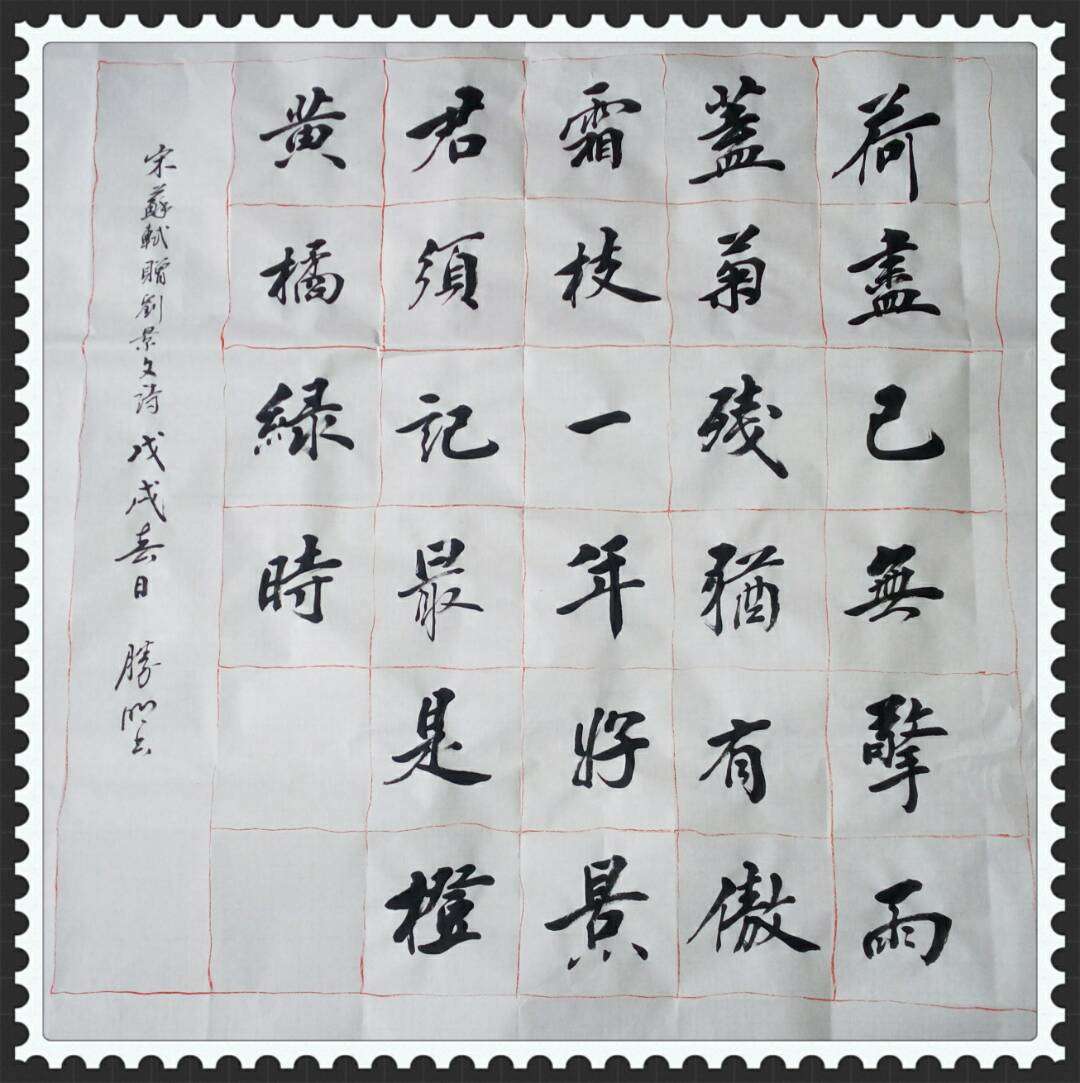 荷盡已無擎雨
蓋菊殘猶有傲
霜枝一年好景
君須記最是橙
黄橘緑時
宋蘇軾贈劉景文詩戊戌春日 勝